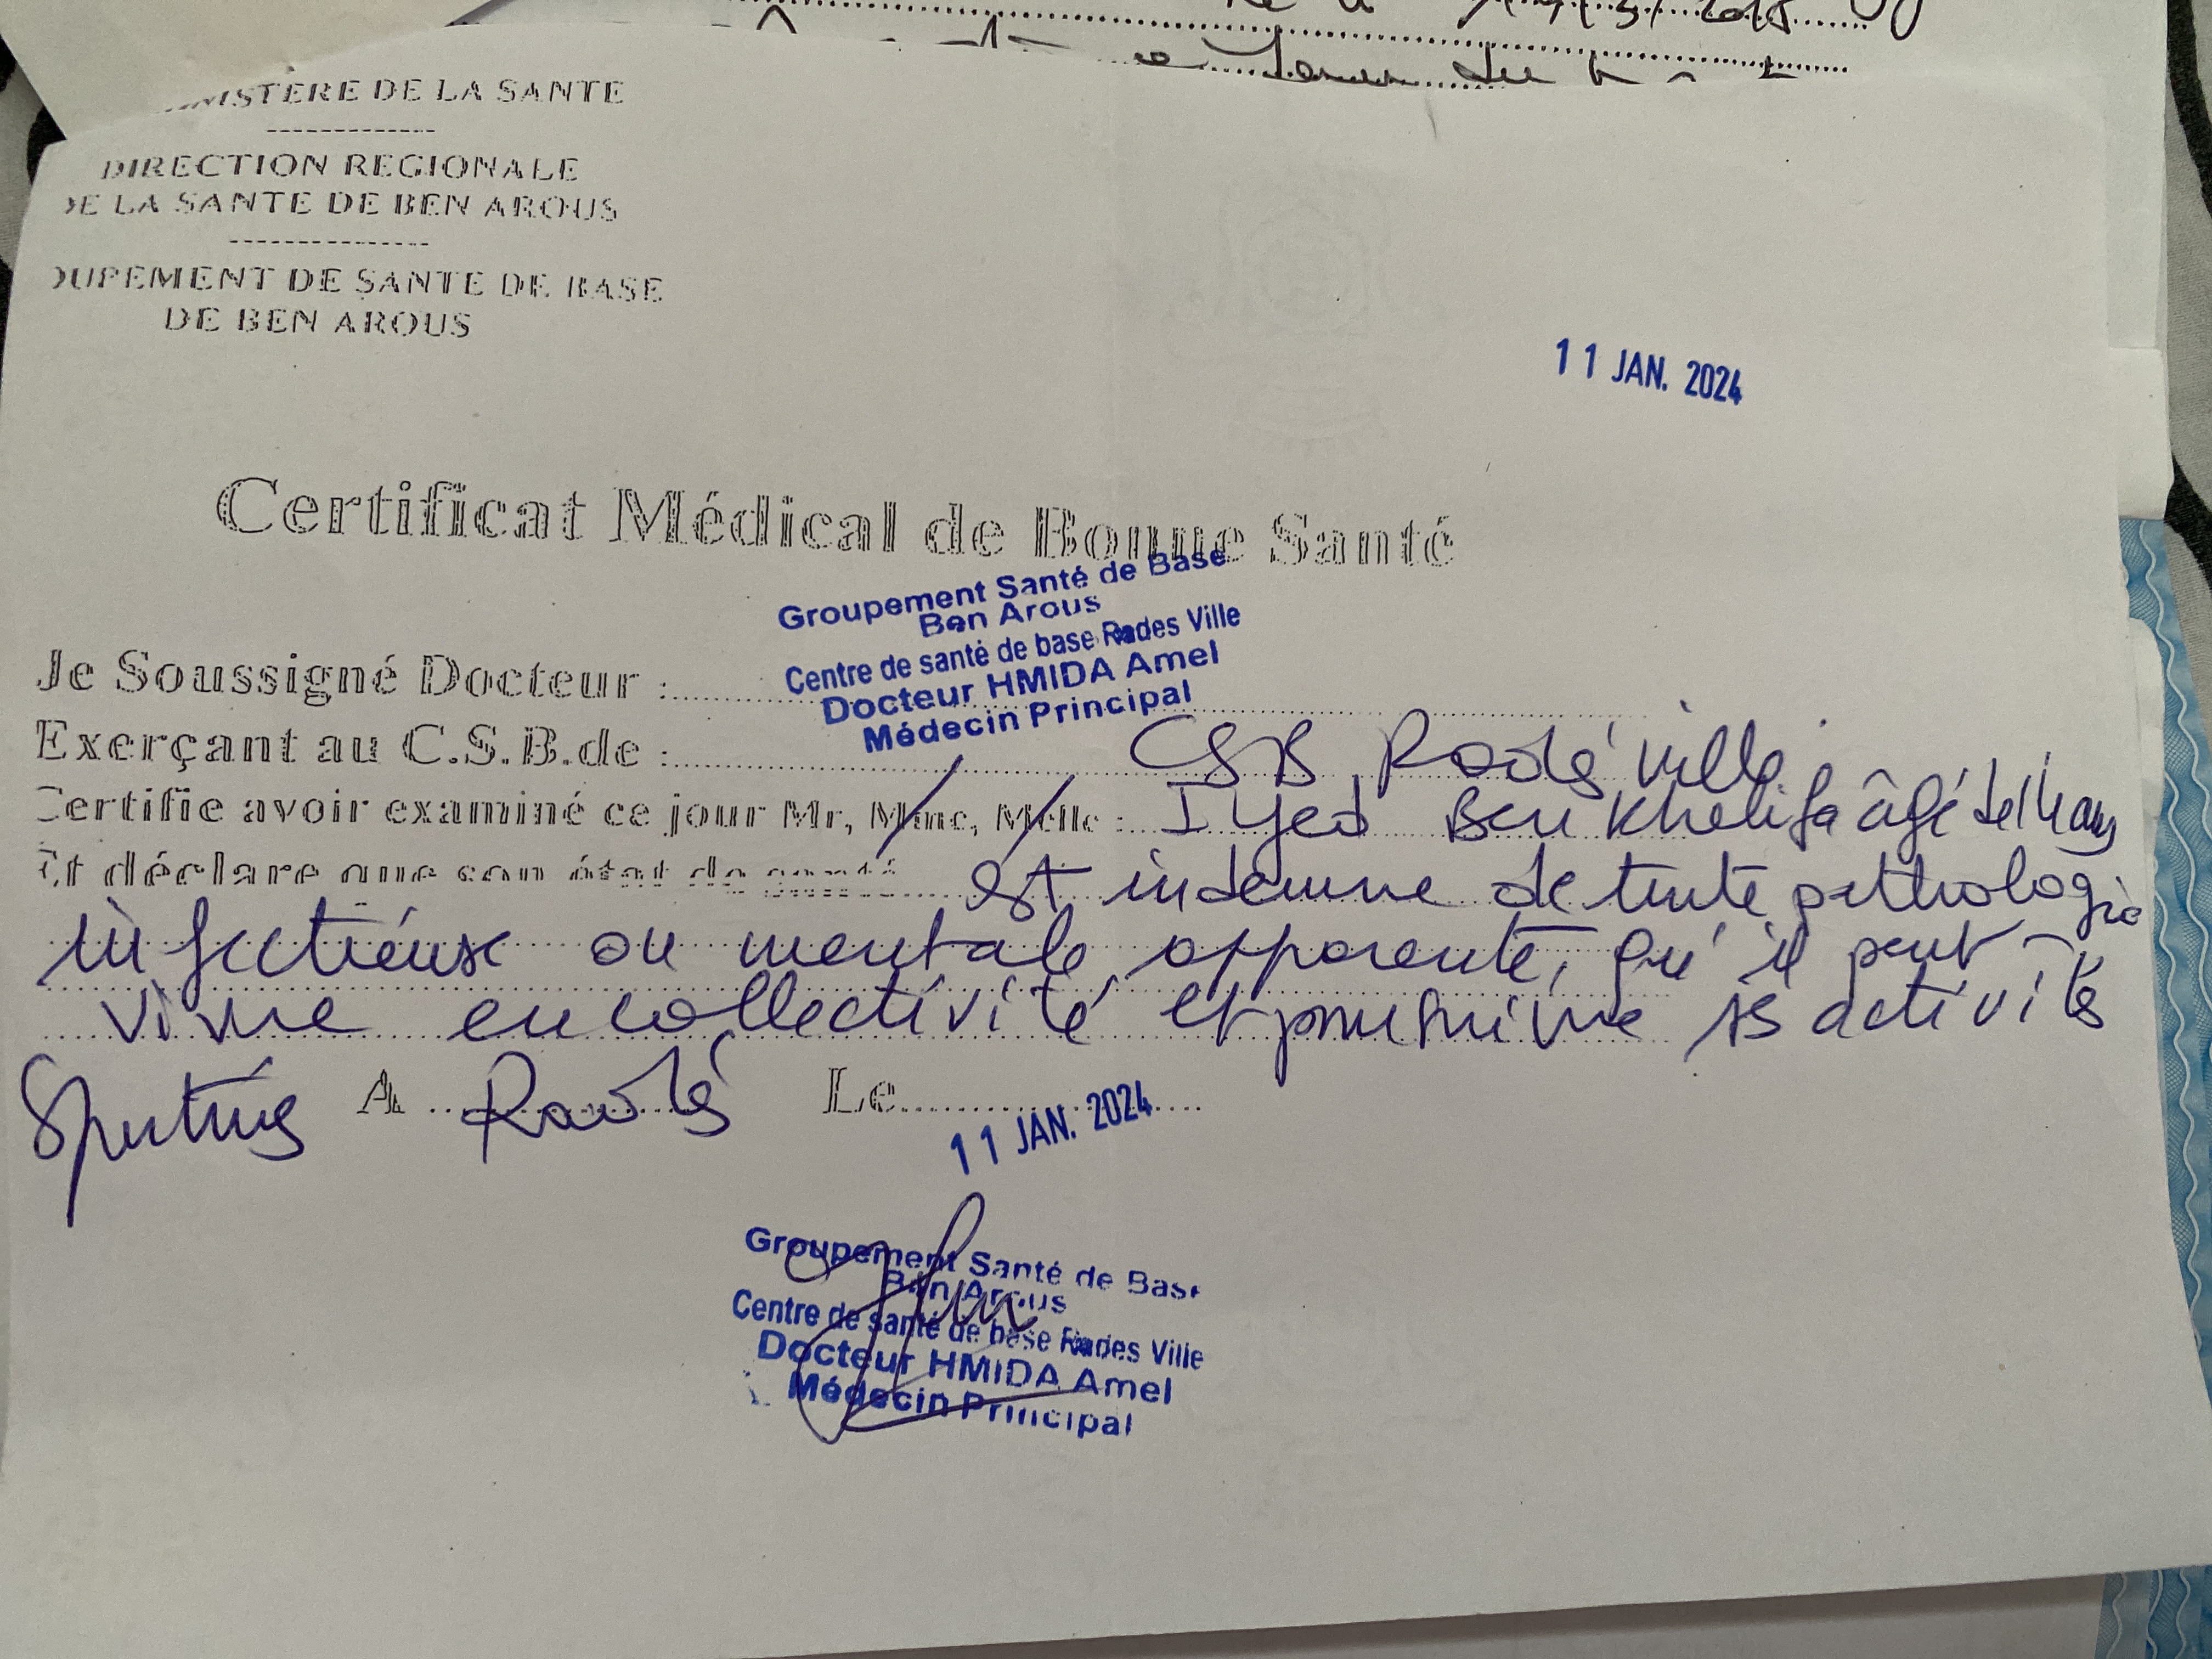 MINISTERE DE LA SANTE
-------------
DIRECTION REGIONALE
DE LA SANTE DE BEN AROUS
---------------
OUPEMENT DE SANTE DE BASE
DE BEN AROUS
11 JAN. 2024
Certificat Médical de Bonne Santé
Groupement Santé de Base
Ben Arous
Centre de santé de base Rades Ville
Docteur HMIDA Amel
Médecin Principal
Je Soussigné Docteur :
Exerçant au C.S.B.de : CSB Radés ville
Certifie avoir examiné ce jour Mr, Mme, Melle : Iyed Ben Khelifa âgé de 14 ans
Et déclare que son état de santé est indemne de toute pathologie
infectieuse ou mentale apparente, qu'il peut
vivre en collectivité et poursuivre ses activités
Sportives A Radés Le 11 JAN. 2024
Groupement Santé de Base
Ben Arous
Centre de santé de base Rades Ville
Docteur HMIDA Amel
Médecin Principal